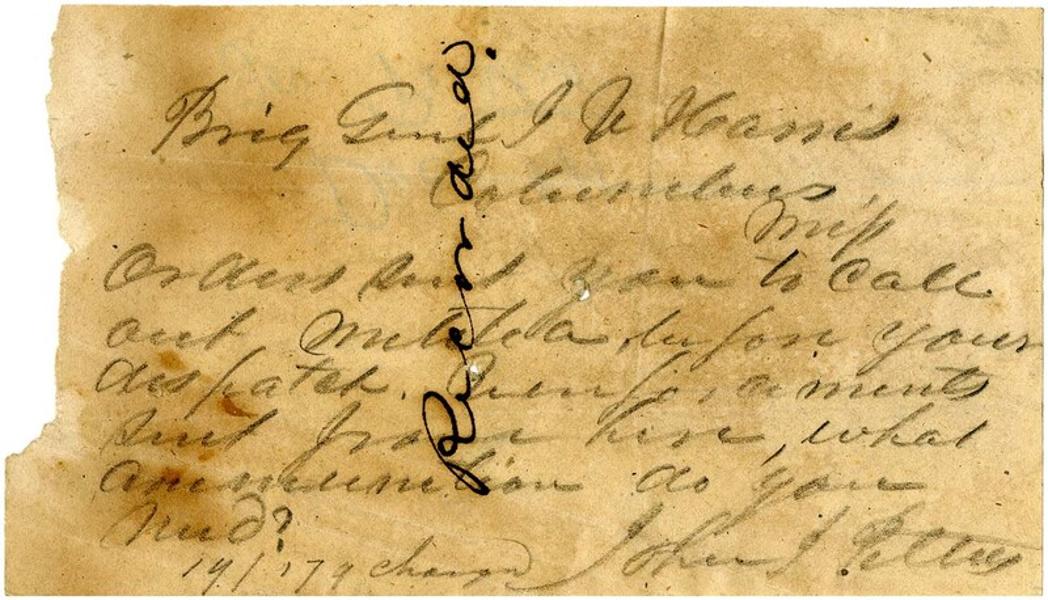 Brig Genl J V Harris
Columbus
Miss
Orders sent you to call
out Militia before your
dispatch. Reenforcements
sent from here, what
ammunition do you
need?
John J Pettus
19/179 charged
Recorded.